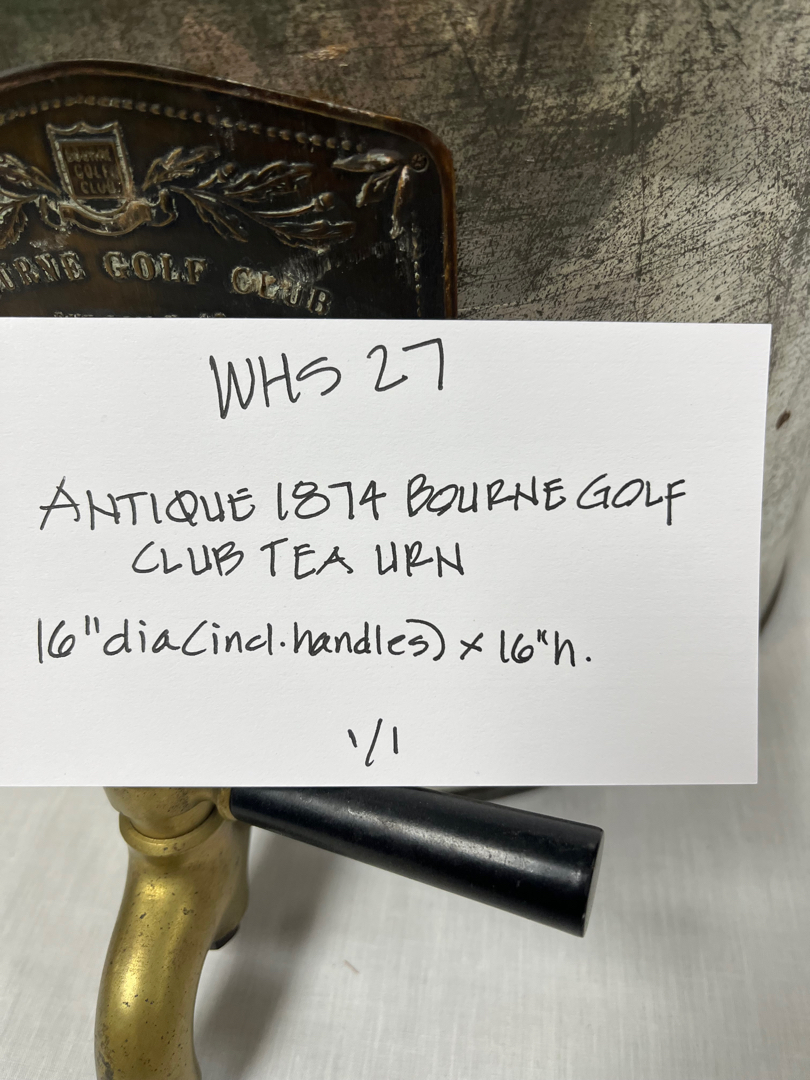 GOLF
CLUB
URNE GOLF CLUB
WHS 27
ANTIQUE 1874 BOURNE GOLF
CLUB TEA URN
16" dia (incl. handles) x 16" h.
1/1